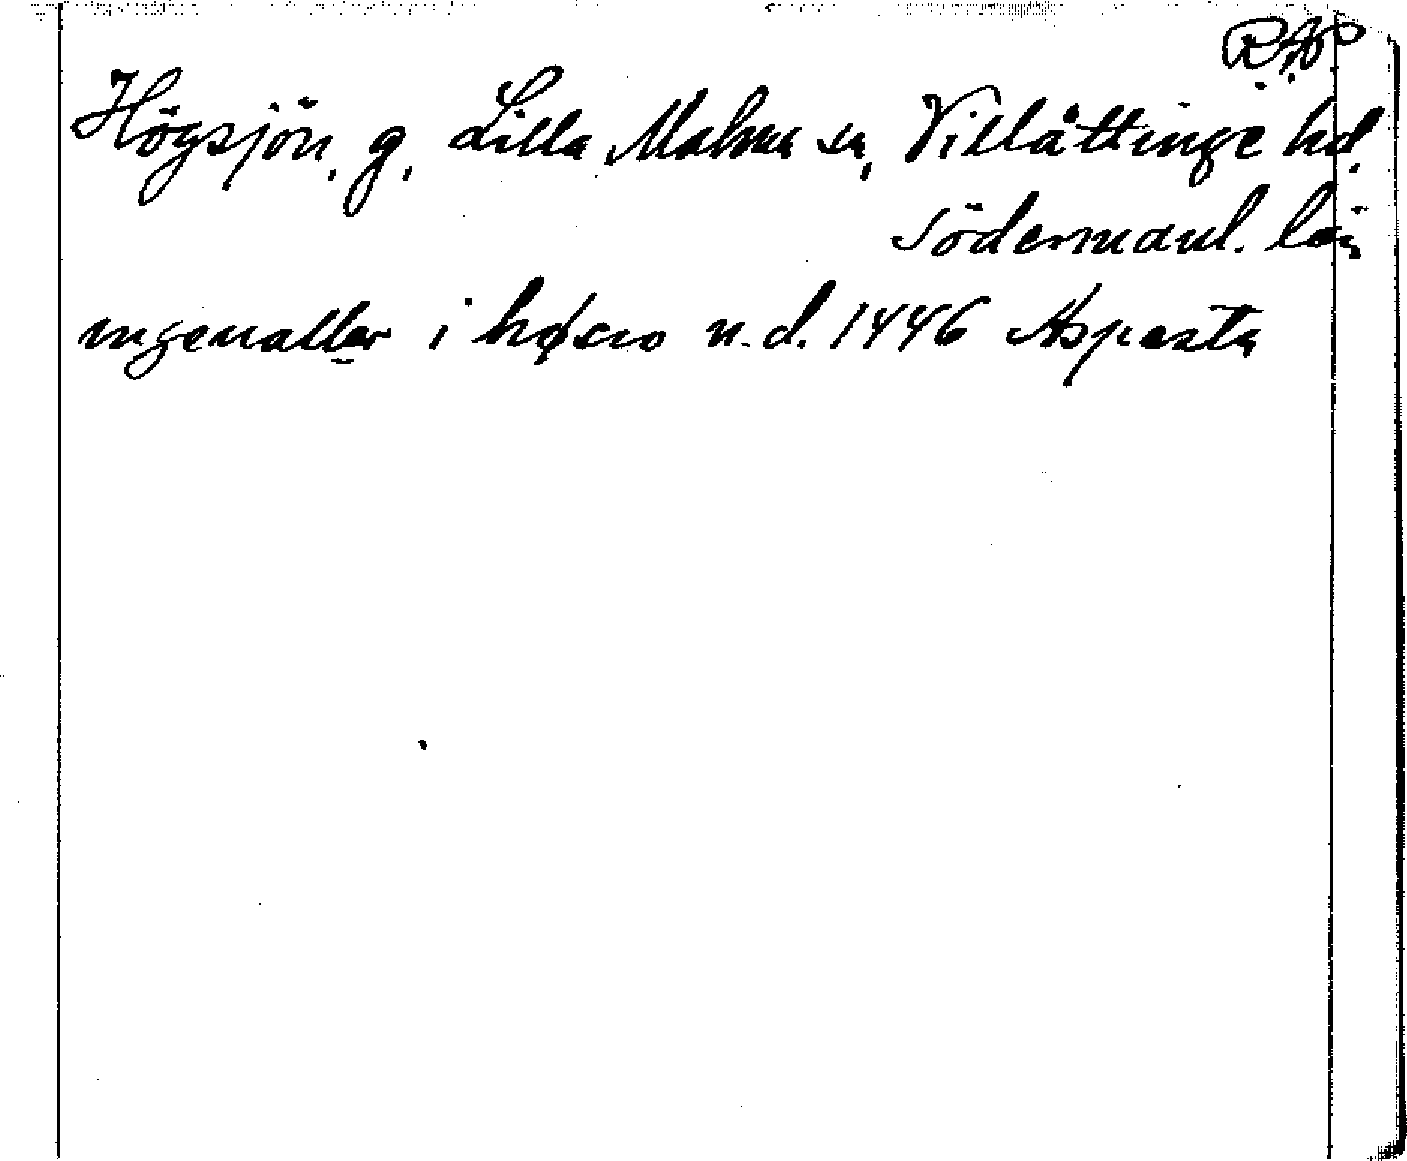 RAP
Högsjön, g, Lilla Malma sn, Villåttinge hd.
Södermanl. län
ingenaller i høsio u.d. 1446 Aspesta